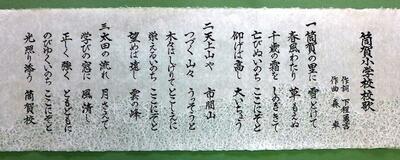 筒賀小学校校歌
作詞 下程勇吉
作曲 森 泉
一 筒賀の里に 雪とけて
春風わたり 草もえぬ
千歳の霜を しのぎきて
亡びぬいのち ここにぞと
仰げば高し 大いちょう
二 天上山や 市間山
つづく山々 うつそうと
木々はしげりて とこしえに
栄えるいのち ここにぞと
望めば遠し 雲の峰
三 太田の流れ 月さえて
学びの窓に 風清し
正しく強く ともどもに
のびゆくいのち ここにぞと
光照り添う 筒賀校